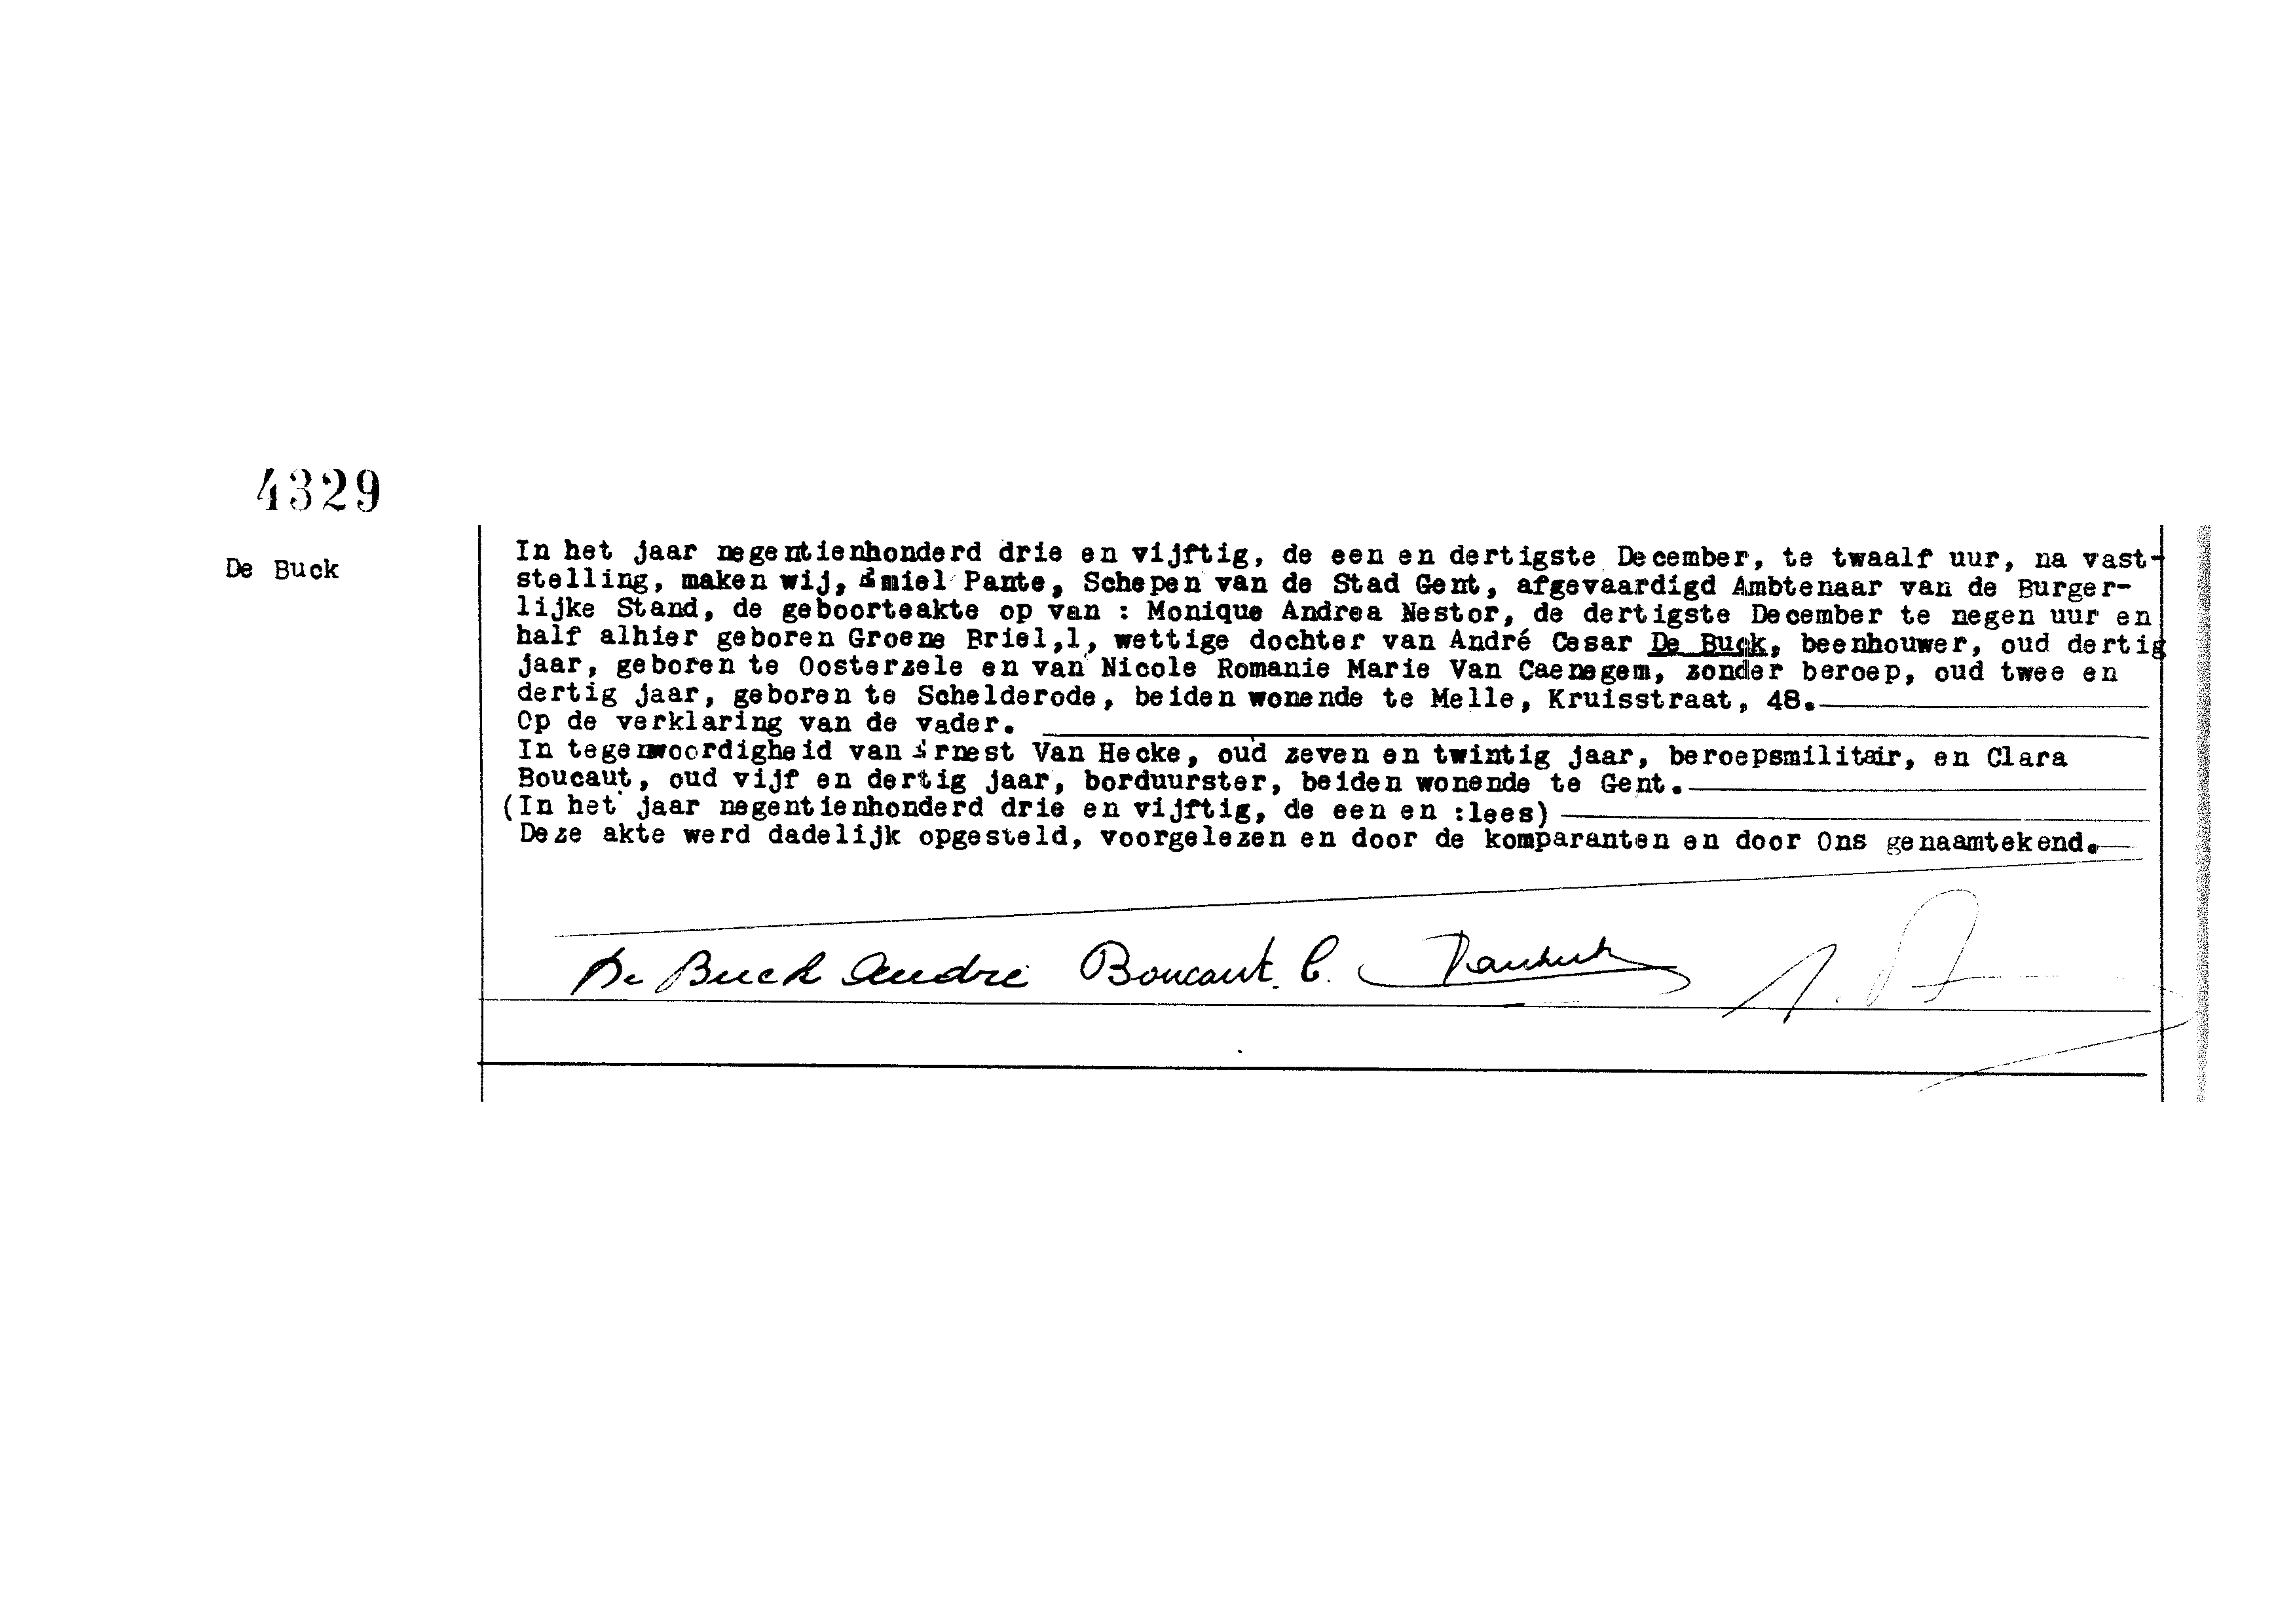 4329
De Buck
In het jaar negentienhonderd drie en vijftig, de een en dertigste December, te twaalf uur, na vast-
stelling, maken wij, Emiel Pante, Schepen van de Stad Gent, afgevaardigd Ambtenaar van de Burger-
lijke Stand, de geboorteakte op van : Monique Andrea Nestor, de dertigste December te negen uur en
half alhier geboren Groene Briel,1, wettige dochter van André Cesar De Buck, beenhouwer, oud dertig
jaar, geboren te Oosterzele en van Nicole Romanie Marie Van Caenegem, zonder beroep, oud twee en
dertig jaar, geboren te Schelderode, beiden wonende te Melle, Kruisstraat, 48.
Op de verklaring van de vader.
In tegenwoordigheid van Ernest Van Hecke, oud zeven en twintig jaar, beroepsmilitair, en Clara
Boucaut, oud vijf en dertig jaar, borduurster, beiden wonende te Gent.
(In het jaar negentienhonderd drie en vijftig, de een en :lees)
Deze akte werd dadelijk opgesteld, voorgelezen en door de komparanten en door Ons genaamtekend.
De Buck André Boucaut. C.